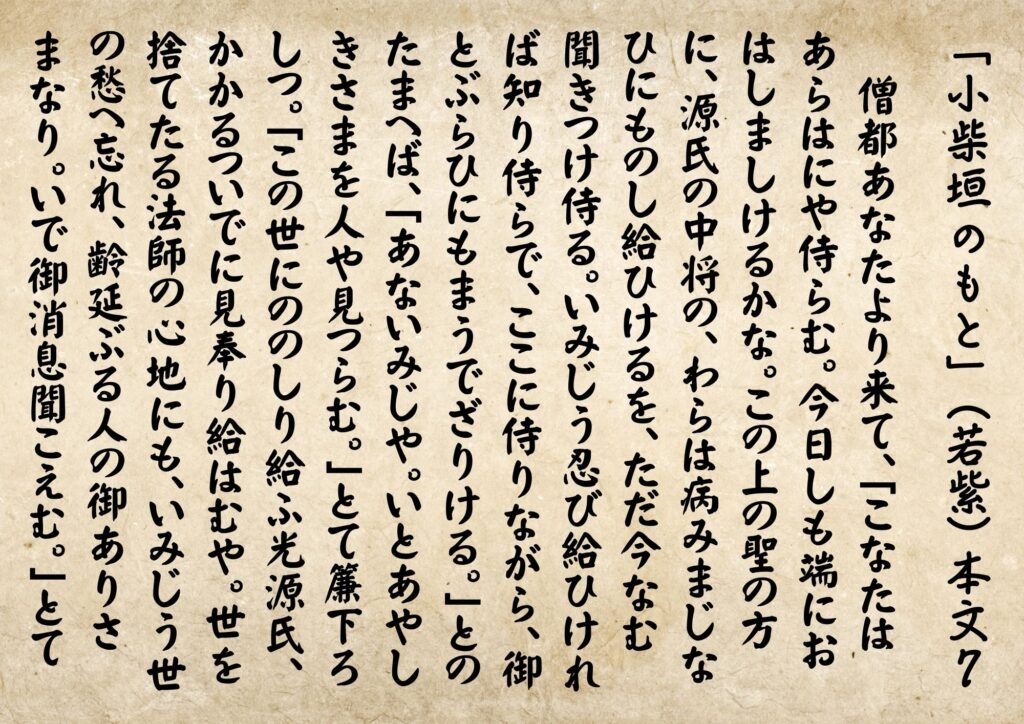 「小柴垣のもと」（若紫）本文7
僧都あなたより来て、「こなたは
あらはにや侍らむ。今日しも端にお
はしましけるかな。この上の聖の方
に、源氏の中将の、わらは病みまじな
ひにものし給ひけるを、ただ今なむ
聞きつけ侍る。いみじう忍び給ひけれ
ば知り侍らで、ここに侍りながら、御
とぶらひにもまうでざりける。」との
たまへば、「あないみじや。いとあやし
きさまを人や見つらむ。」とて簾下ろ
しつ。「この世にののしり給ふ光源氏、
かかるついでに見奉り給はむや。世を
捨てたる法師の心地にも、いみじう世
の愁へ忘れ、齢延ぶる人の御ありさ
まなり。いで御消息聞こえむ。」とて